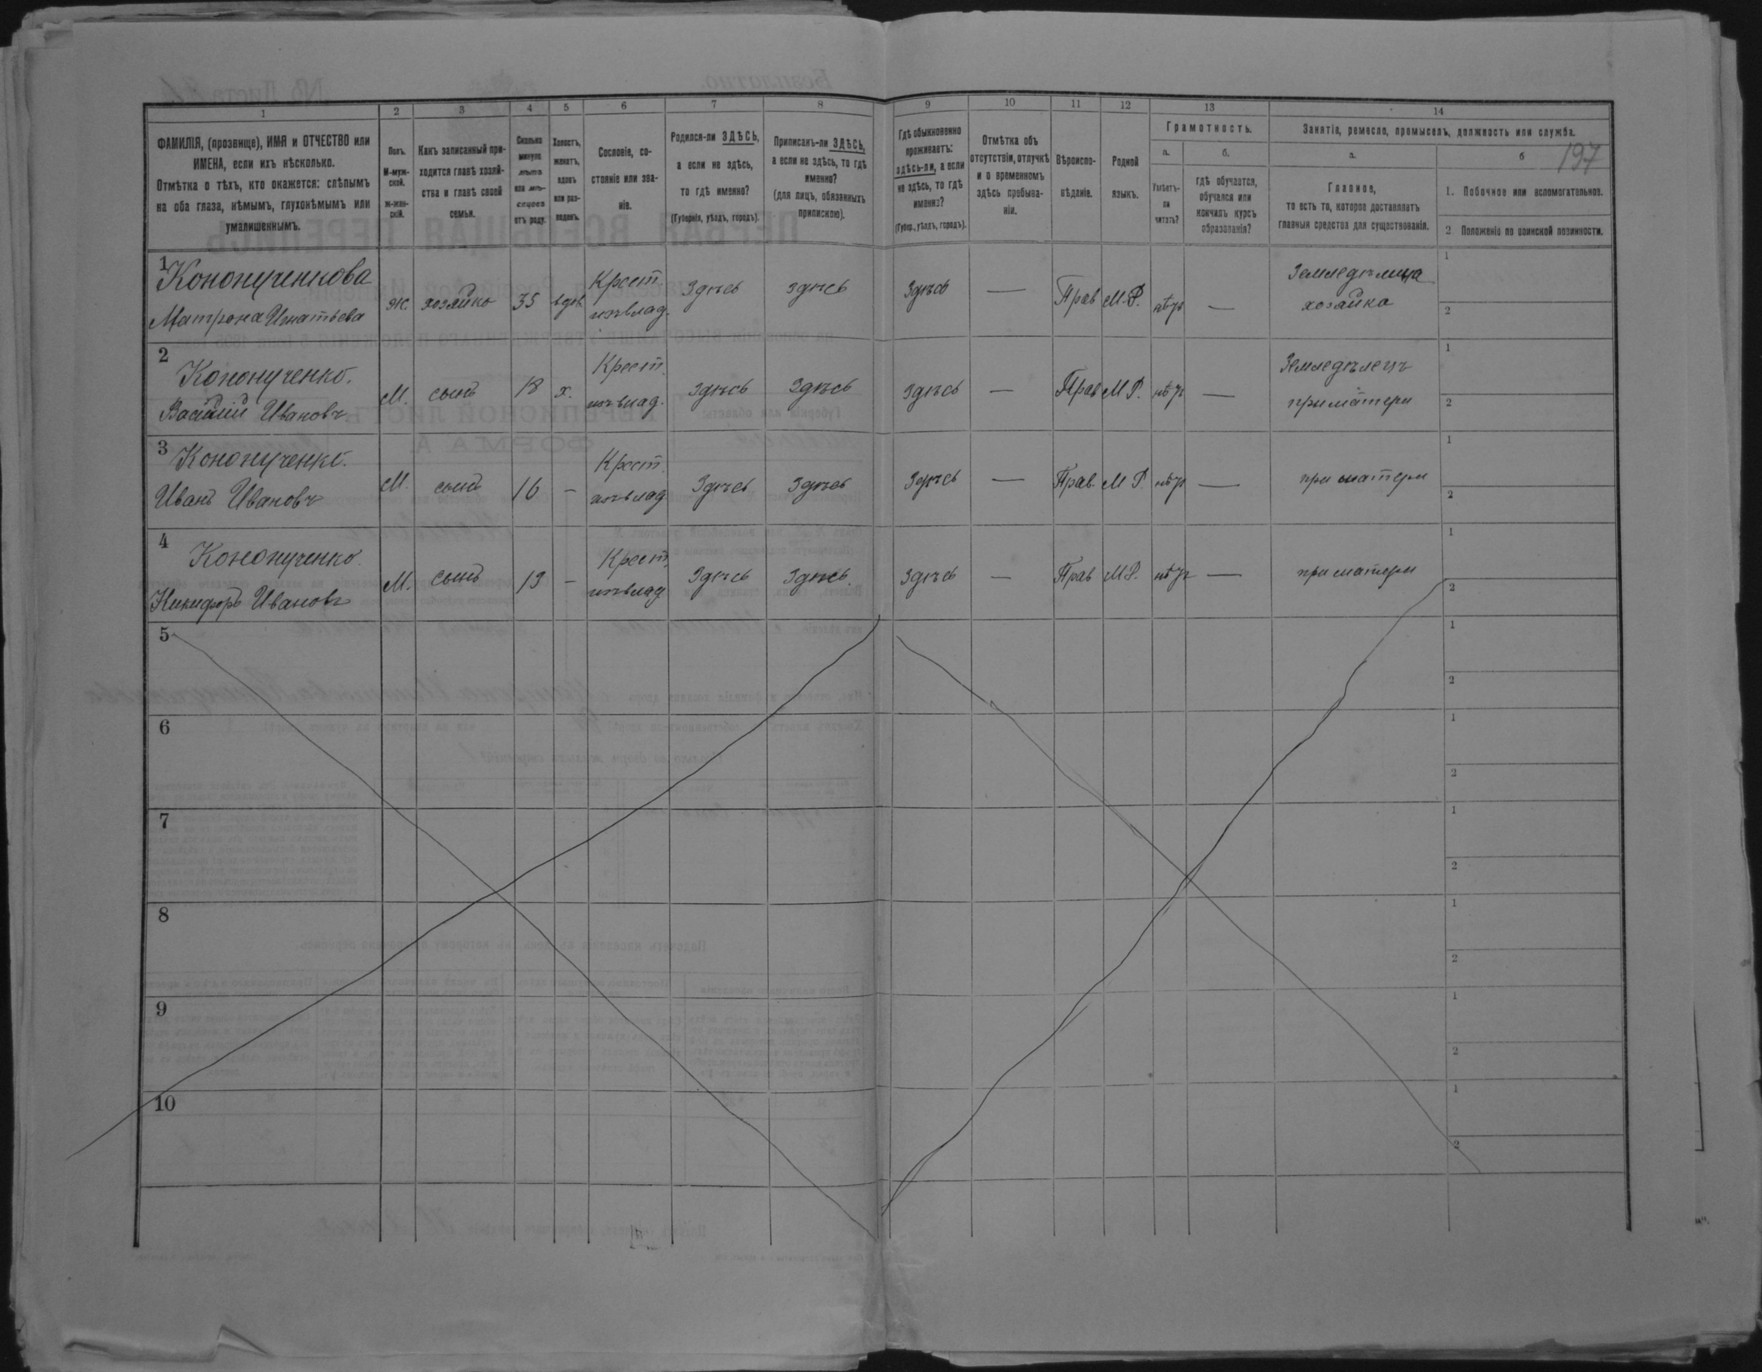 197
1 2 3 4 5 6 7 8 9 10 11 12 13 14
ФАМИЛІЯ, (прозвище), ИМЯ и ОТЧЕСТВО или
ИМЕНА, если ихъ нѣсколько.
Отмѣтка о тѣхъ, кто окажется: слѣпымъ
на оба глаза, нѣмымъ, глухонѣмымъ или
умалишеннымъ.
Полъ.
М-муж-
ской.
ж-жен-
скій.
Какъ записанный при-
ходится главѣ хозяй-
ства и главѣ своей
семьи.
Сколько
минуло
лѣтъ
или мѣ-
сяцевъ
отъ роду.
Холостъ,
женатъ,
вдовъ
или раз-
веденъ.
Сословіе, со-
стояніе или зва-
ніе.
Родился-ли ЗДѢСЬ,
а если не здѣсь,
то гдѣ именно?
(Губернія, уѣздъ, городъ).
Приписанъ-ли ЗДѢСЬ,
а если не здѣсь, то гдѣ
именно?
(для лицъ, обязанныхъ
припискою).
Гдѣ обыкновенно
проживаетъ:
здѣсь-ли, а если
не здѣсь, то гдѣ
именно?
(Губер., уѣздъ, городъ).
Отмѣтка объ
отсутствіи, отлучкѣ
и о временномъ
здѣсь пребыва-
ніи.
Вѣроиспо-
вѣданіе.
Родной
языкъ.
Грамотность.
а.
Умѣетъ-
ли
читать?
б.
гдѣ обучается,
обучался или
кончилъ курсъ
образованія?
Занятіе, ремесло, промыселъ, должность или служба.
а.
Главное,
то есть то, которое доставляетъ
главныя средства для существованія.
б
1. Побочное или вспомогательное.
2 Положеніе по воинской повинности.
1 Кононученкова
Матрона Игнатьева
ж. хозяйка 35 вдов. Крест. изъ влад. Здѣсь здѣсь Здѣсь — Прав М.Р. нѣтъ —
Земледѣлица
хозяйка
1
2
2 Кононученко.
Василій Ивановъ
М. сынъ 18 х. Крест. изъ влад. Здѣсь Здѣсь Здѣсь — Прав М Р. нѣтъ —
Земледѣлецъ
при матери
1
2
3 Кононученко.
Иванъ Ивановъ
М. сынъ 16 — Крест. изъ влад Здѣсь Здѣсь Здѣсь — Прав. М Р нѣтъ —
при матери
1
2
4 Кононученко.
Никифоръ Ивановъ
М. сынъ 13 — Крест. изъ влад Здѣсь Здѣсь. Здѣсь — Прав М.Р. нѣтъ —
при матери
1
2
5
1
2
6
1
2
7
1
2
8
1
2
9
1
2
10
1
2